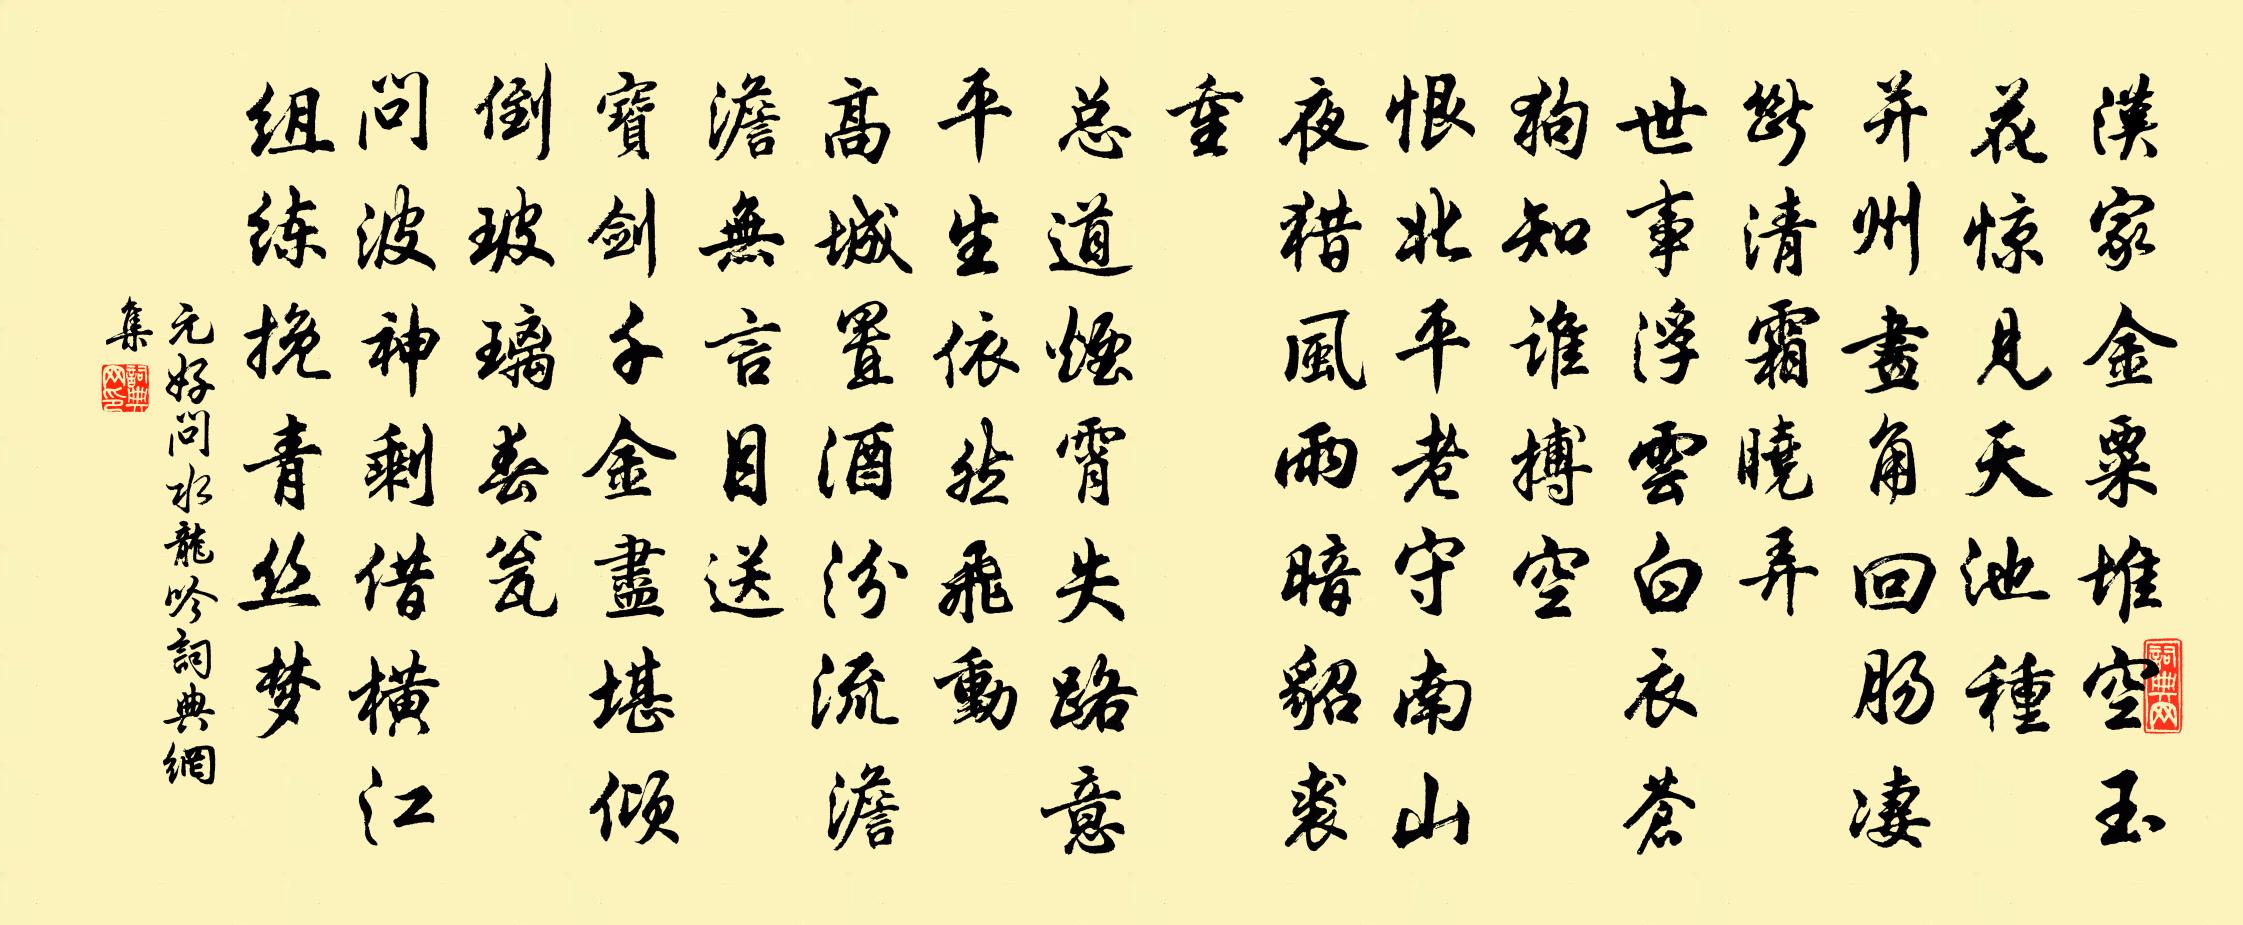 漢家金粟堆空玉
花惊見天池種
并州畫角回肠凄
斷清霜曉弄
世事浮雲白衣蒼
狗知谁搏空
恨北平老守南山
夜猎風雨暗貂裘
重
总道煙霄失路意
平生依然飛動
高城置酒汾流澹
澹無言目送
寶劍千金盡堪倾
倒玻璃春瓮
問波神剩借横江
组练挽青丝梦
元好問水龍吟詞典網
集
詞典网
詞典网印